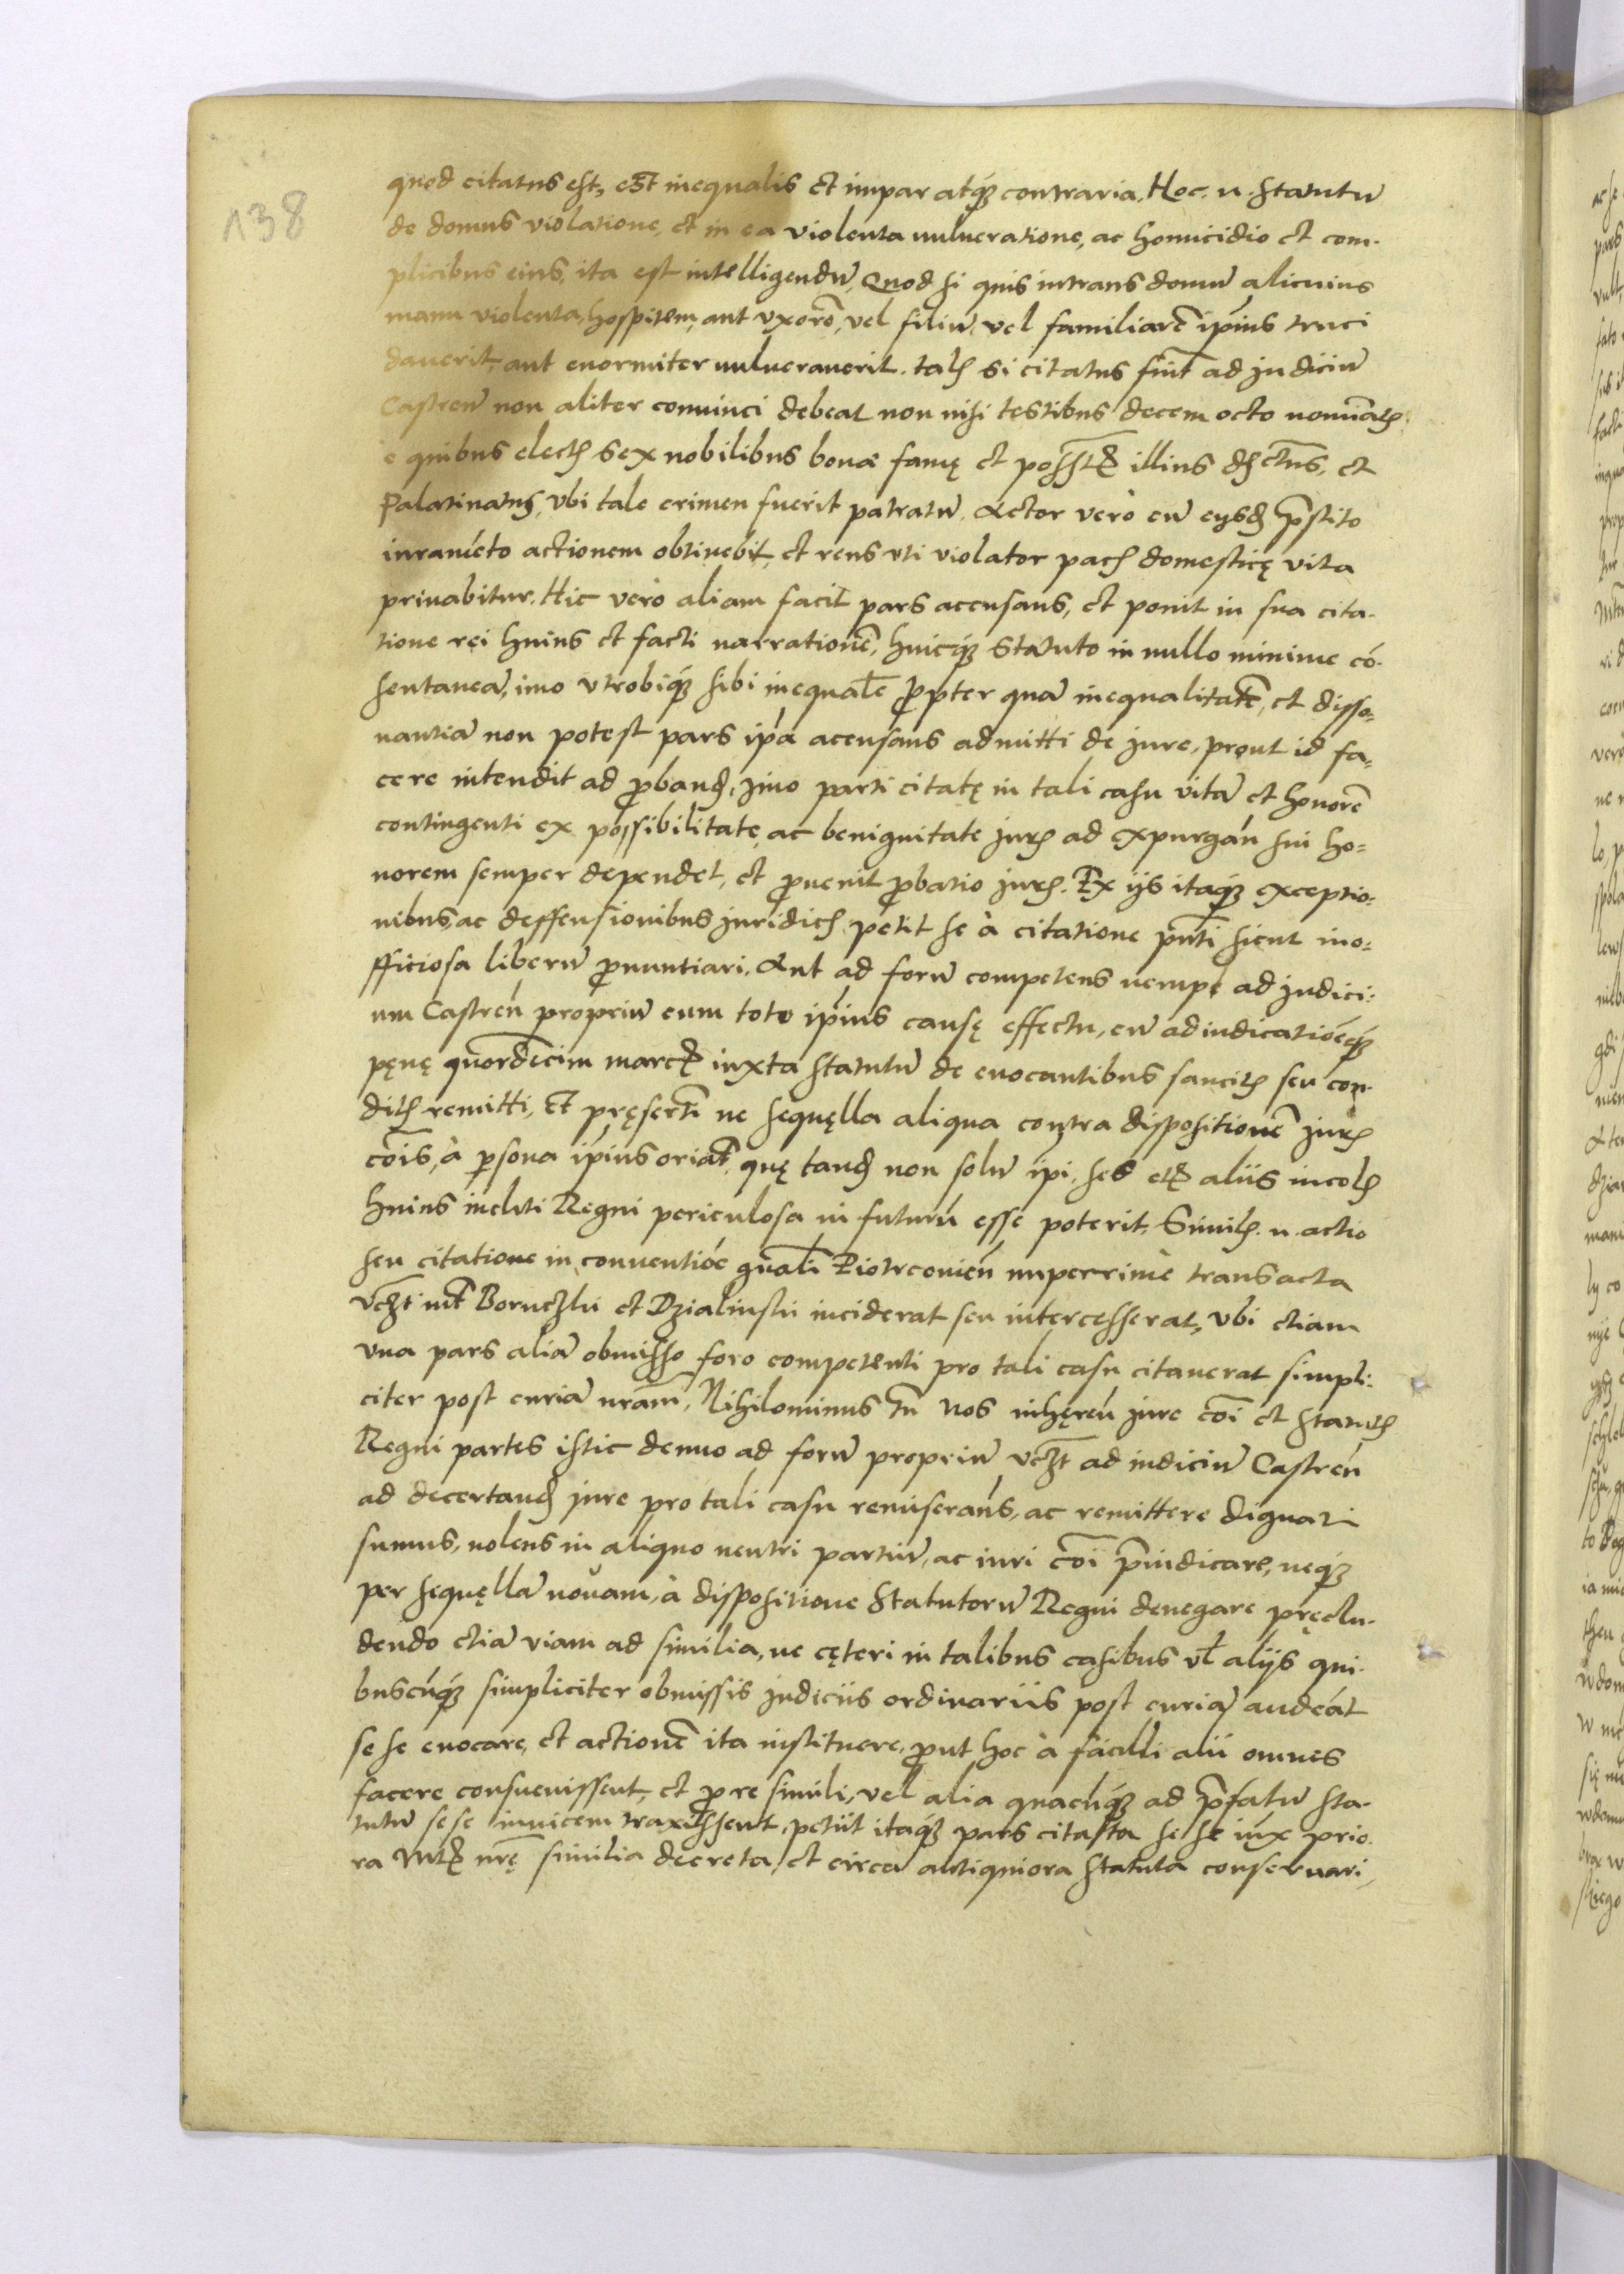 138
quod citatus est, est inequalis et impar atq̃ꝫ contraria. Hoc. n. statutũ
de domus violatione, et in ea violenta uulneratione, ac homicidio et com-
plicibus eius, ita est intelligendũ, Quod si quis intrans domũ alicuius
manu violenta, hospitem, aut vxorẽ, vel filiũ, vel familiarẽ ip̃ius truci
dauerit, aut enormiter uulnerauerit. talꝭ si citatus fuit ad judiciũ
Castreñ non aliter conuinci debeat non nisi testibus decem octo nominatꝭ
e quibus electꝭ sex nobilibus bonæ famę et possess illius
Palatinatus, vbi tale crimen fuerit patratũ. Actor verò cũ eysdẽ p̃stito
iuramẽto actionem obtinebit, et reus vti violator pacꝭ domesticę vita
priuabitur. Hic verò aliam facit pars accusans, et ponit in sua cita-
tione rei huius et facti narrationẽ, huicq̃ꝫ statuto in nullo minime cõ-
sentaneã, imo vtrobiq̃ꝫ sibi inequalẽ p̱pter quã inequalitatẽ, et disso-
nantiã non potest pars ip̃a acusans admitti de jure, prout id fa-
cere intendit ad p̱bandꝭ, jmo parti citatę in tali casu vitã et honorẽ
contingenti ex possibilitate, ac benignitate jurꝭ ad expurgañ sui ho-
norem semper dependet, et p̱uenit p̱batio jurꝭ. Ex ijs itaq̃ꝫ exceptio-
nibus, ac deffensionibus juridicꝭ petit se à citatione pñti sicut ino-
fficiosa liberũ p̱nuntiari. Aut ad forũ competens nempe ad judici-
um Castreñ propriũ cum toto ip̃ius causę effectu, cũ adiudicatiõeq̃ꝫ
pęnę quordecim marcꝭ iuxta statutũ de euocantibus sancitꝭ seu con-
ditꝭ remitti, et pręsertĩ ne sequęlla aliqua contra dispositionẽ jurꝭ
cõis, à p̱sona ip̃ius oriat̃, quę tandꝭ non solũ ip̃i, sed etꝭ aliis incolꝭ
huius incliti Regni periculosa in futurũ esse poterit. Similꝭ. n. actio
seu citatione in conuentiõe gñali Piotrcouieñ nuperrimè transacta
vcꝫt inter Boruczkii et Dzialinskii inciderat seu intercesserat, vbi etiam
vna pars aliã obmisso foro competenti pro tali casu citauerat simpli-
citer post curiã nrãm, Nihilominus tñ nos inhęreñ jure cõi et statutꝭ
Regni partes istic denuo ad forũ propriũ vcꝫt ad iudiciũ Castreñ
ad decertandꝭ jure pro tali casu remiserams, ac remittere dignati
sumus, nolens in aliquo neutri partiũ, ac iuri cõi p̃iudicare, neq̃ꝫ
per sequęllã nouam, à dispositione statutorũ Regni denegare pręclu-
dendo etiã viam ad similia, ne cęteri in talibus casibus vl̃ alijs qui-
buscũq̃ꝫ simpliciter obmissis judiciis ordinariis post curiã audeãt
se se euocare, et actionẽ ita instituere, p̱ut hoc à facilli alii omnes
facere consueuissent, et p̱ re simili, vel alia quacũq̃ꝫ ad p̃fatũ sta-
tutũ sese inuicem traxissent, petiit itaq̃ꝫ pars citata se se iux̃ prio-
ra Mtꝭ nrę̃ similia decreta, et circa antiquiora statuta conseruari,